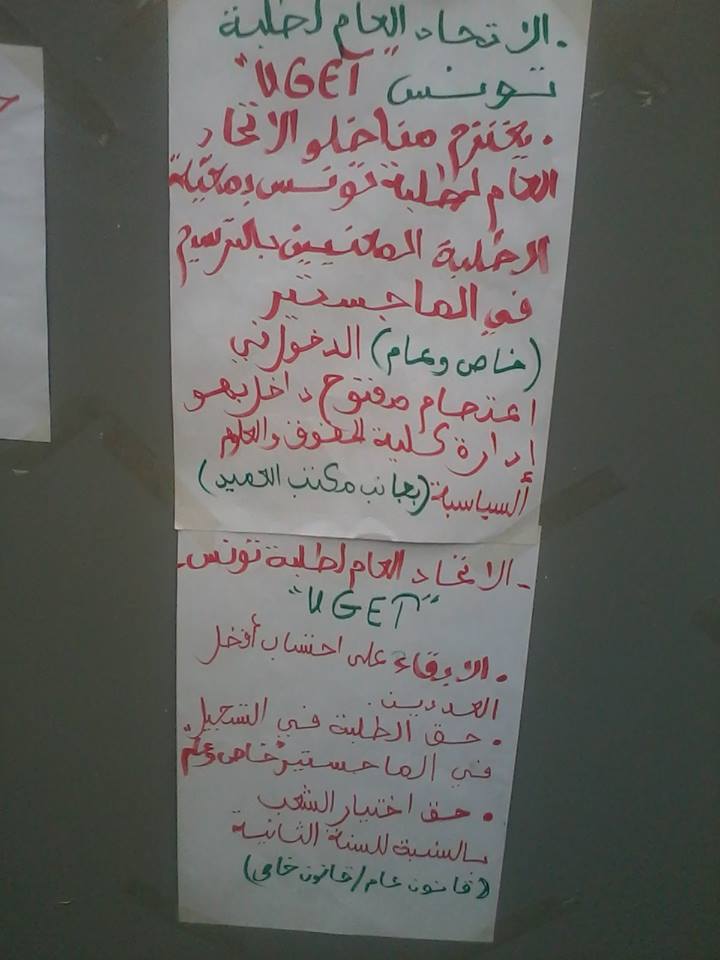 . الاتحاد العام لطلبة
تونس "UGET"
. يعتزم مناضلو الاتحاد
العام لطلبة تونس ومعيّة
الطلبة المعنيين بالترسيم
في الماجستير
(خاص وعام) الدخول في
اعتصام مفتوح داخل بهو
إدارة كلية الحقوق والعلوم
السياسية (بجانب مكتب العميد)
- الاتحاد العام لطلبة تونس -
"UGET"
. الإبقاء على احتساب أفضل
العددين.
. حق الطلبة في التسجيل
في الماجستير "خاص وعام"
. حق اختيار الشعب
بالنسبة للسنة الثانية
(قانون عام/قانون خاص)